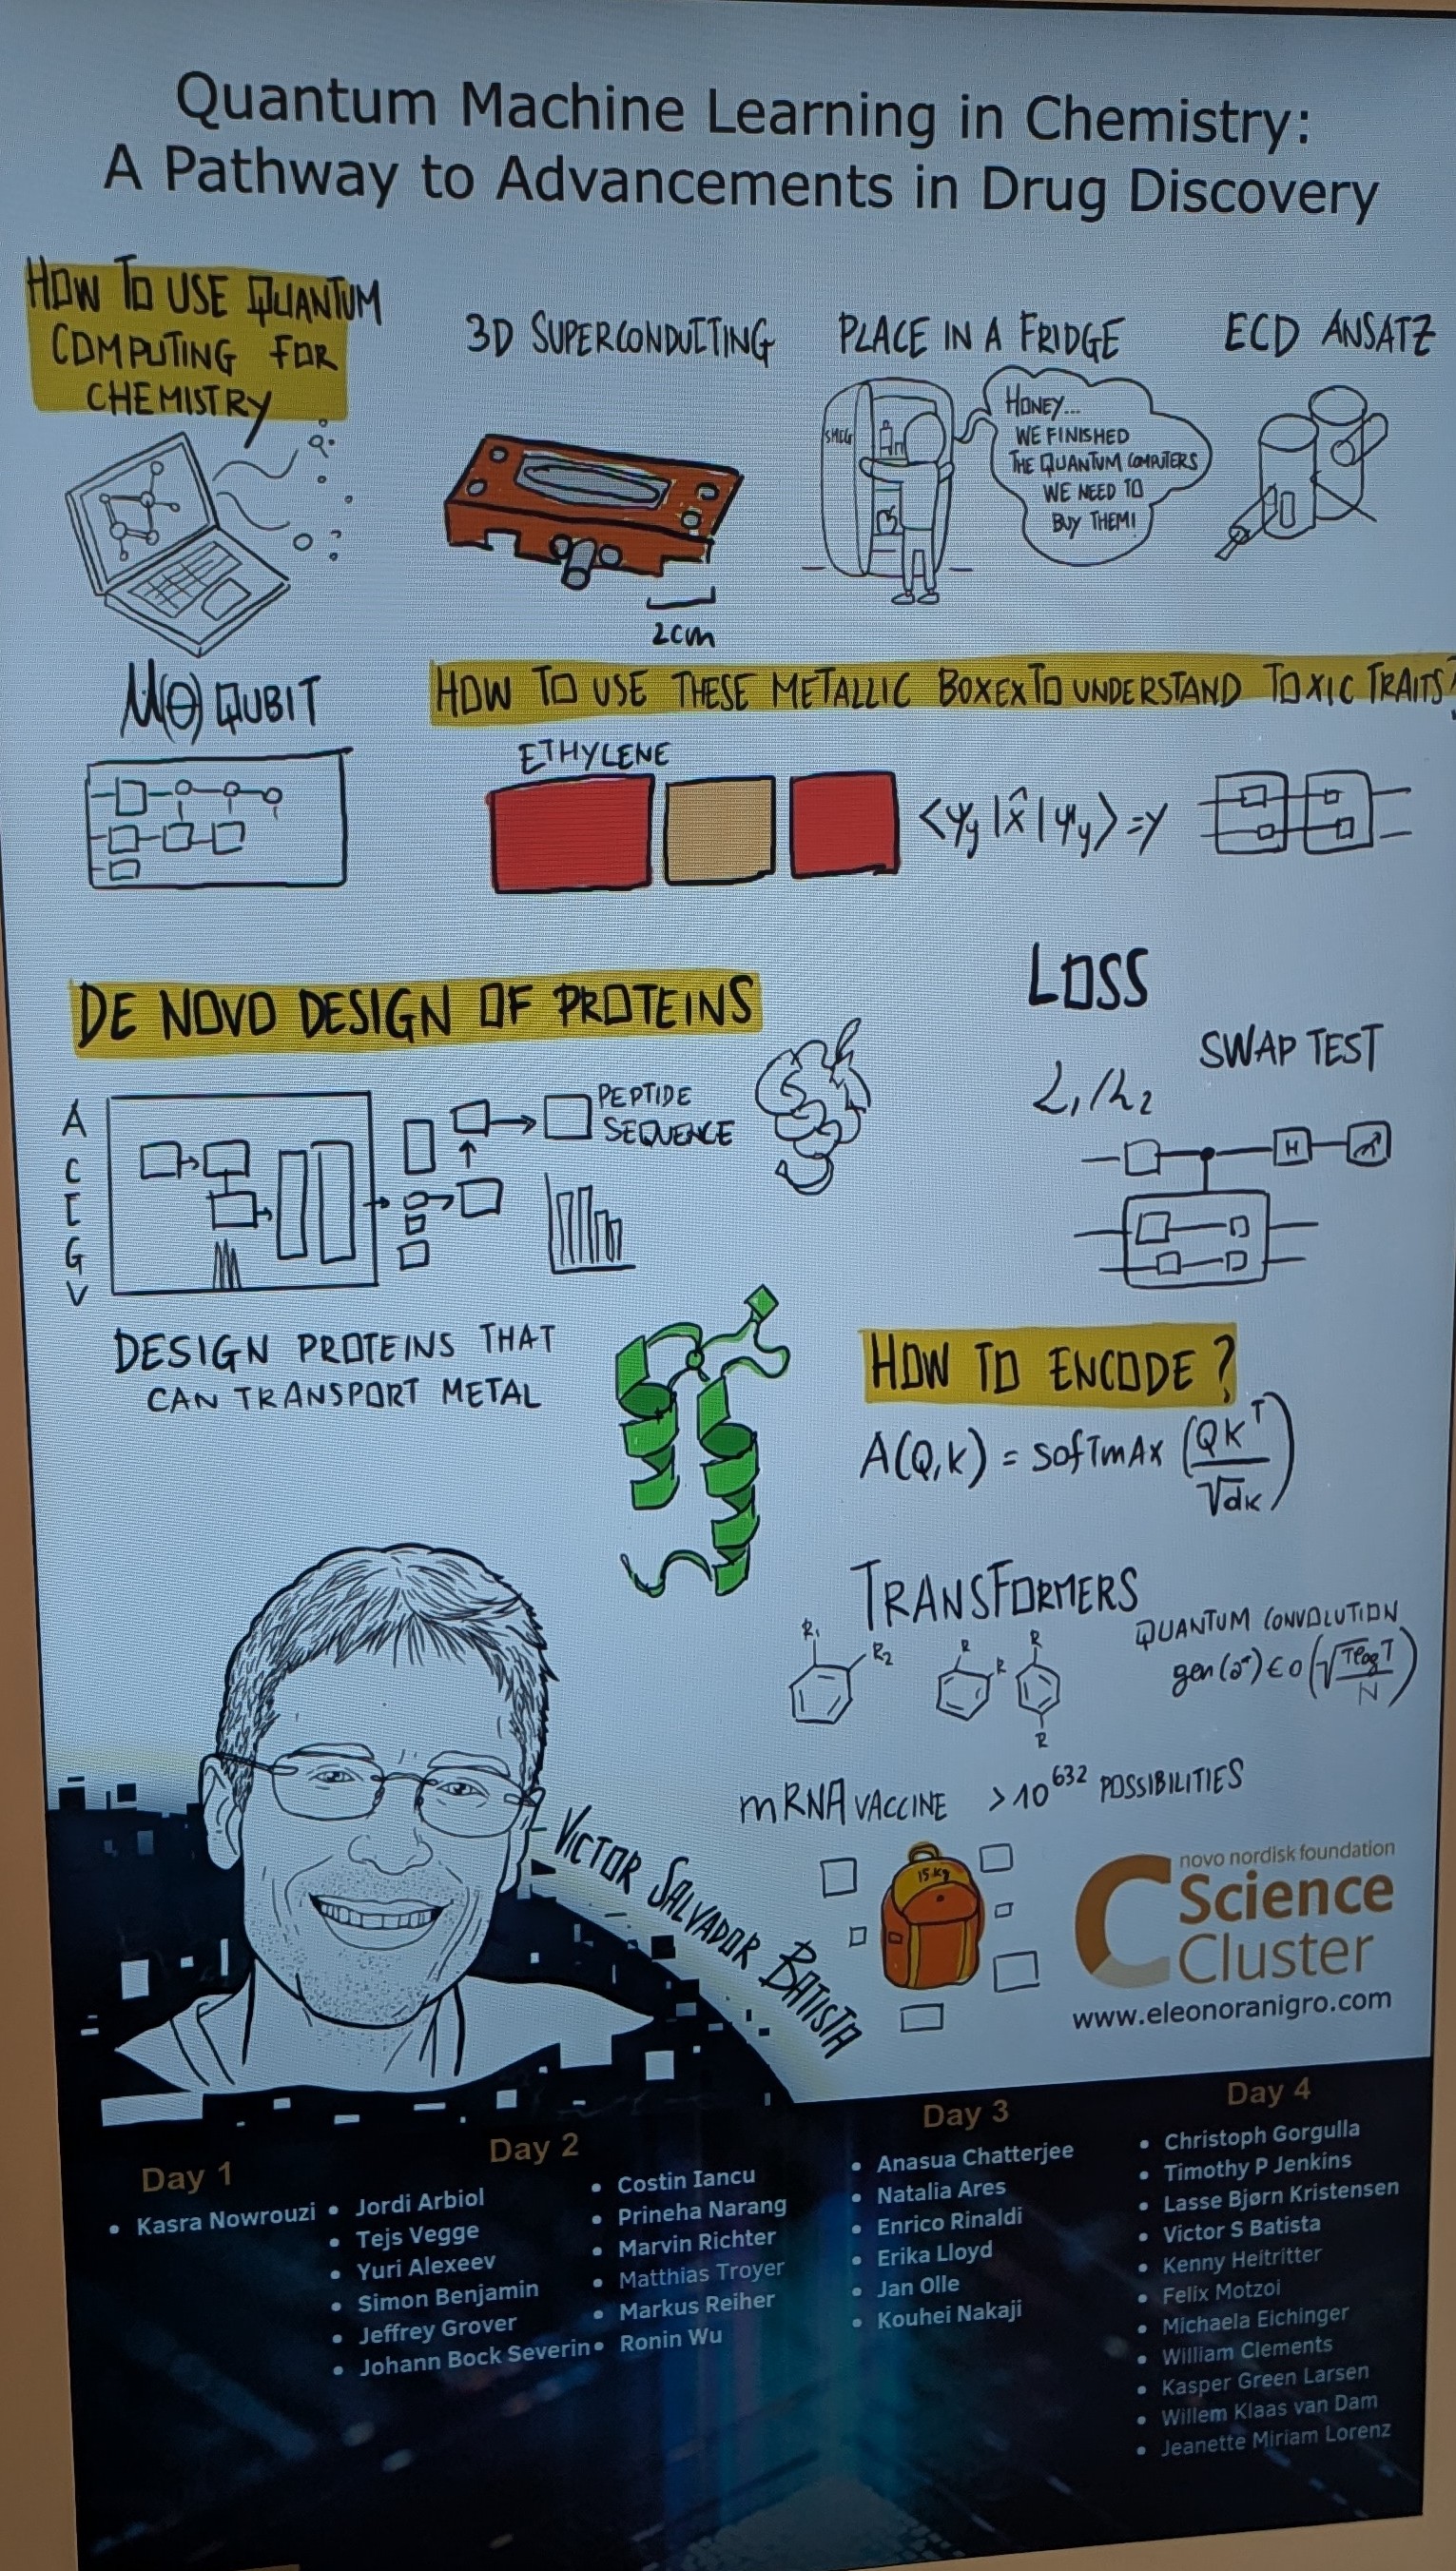 Quantum Machine Learning in Chemistry:
A Pathway to Advancements in Drug Discovery
HOW TO USE QUANTUM
COMPUTING FOR
CHEMISTRY
3D SUPERCONDUCTING
2cm
PLACE IN A FRIDGE
SMEG
HONEY...
WE FINISHED
THE QUANTUM COMPUTERS
WE NEED TO
BUY THEM!
ECD ANSATZ
QUBIT
HOW TO USE THESE METALLIC BOXEX TO UNDERSTAND TOXIC TRAITS?
ETHYLENE
<ψy|x̂|ψy>=y
DE NOVO DESIGN OF PROTEINS
A
C
E
G
V
PEPTIDE
SEQUENCE
DESIGN PROTEINS THAT
CAN TRANSPORT METAL
LOSS
SWAP TEST
L1/L2
H
HOW TO ENCODE?
A(Q,K) = SOFTMAX (QK^T/√dK)
TRANSFORMERS
R1
R2
R
R
R
R
QUANTUM CONVOLUTION
mRNA VACCINE >10^632 POSSIBILITIES
15 Kg
VICTOR SALVADOR BATISTA
novo nordisk foundation
Science
Cluster
www.eleonoranigro.com
Day 1
Kasra Nowrouzi
Day 2
Jordi Arbiol
Tejs Vegge
Yuri Alexeev
Simon Benjamin
Jeffrey Grover
Johann Bock Severin
Costin Iancu
Prineha Narang
Marvin Richter
Matthias Troyer
Markus Reiher
Ronin Wu
Day 3
Anasua Chatterjee
Natalia Ares
Enrico Rinaldi
Erika Lloyd
Jan Olle
Kouhei Nakaji
Day 4
Christoph Gorgulla
Timothy P Jenkins
Lasse Bjørn Kristensen
Victor S Batista
Kenny Heitritter
Felix Motzoi
Michaela Eichinger
William Clements
Kasper Green Larsen
Willem Klaas van Dam
Jeanette Miriam Lorenz